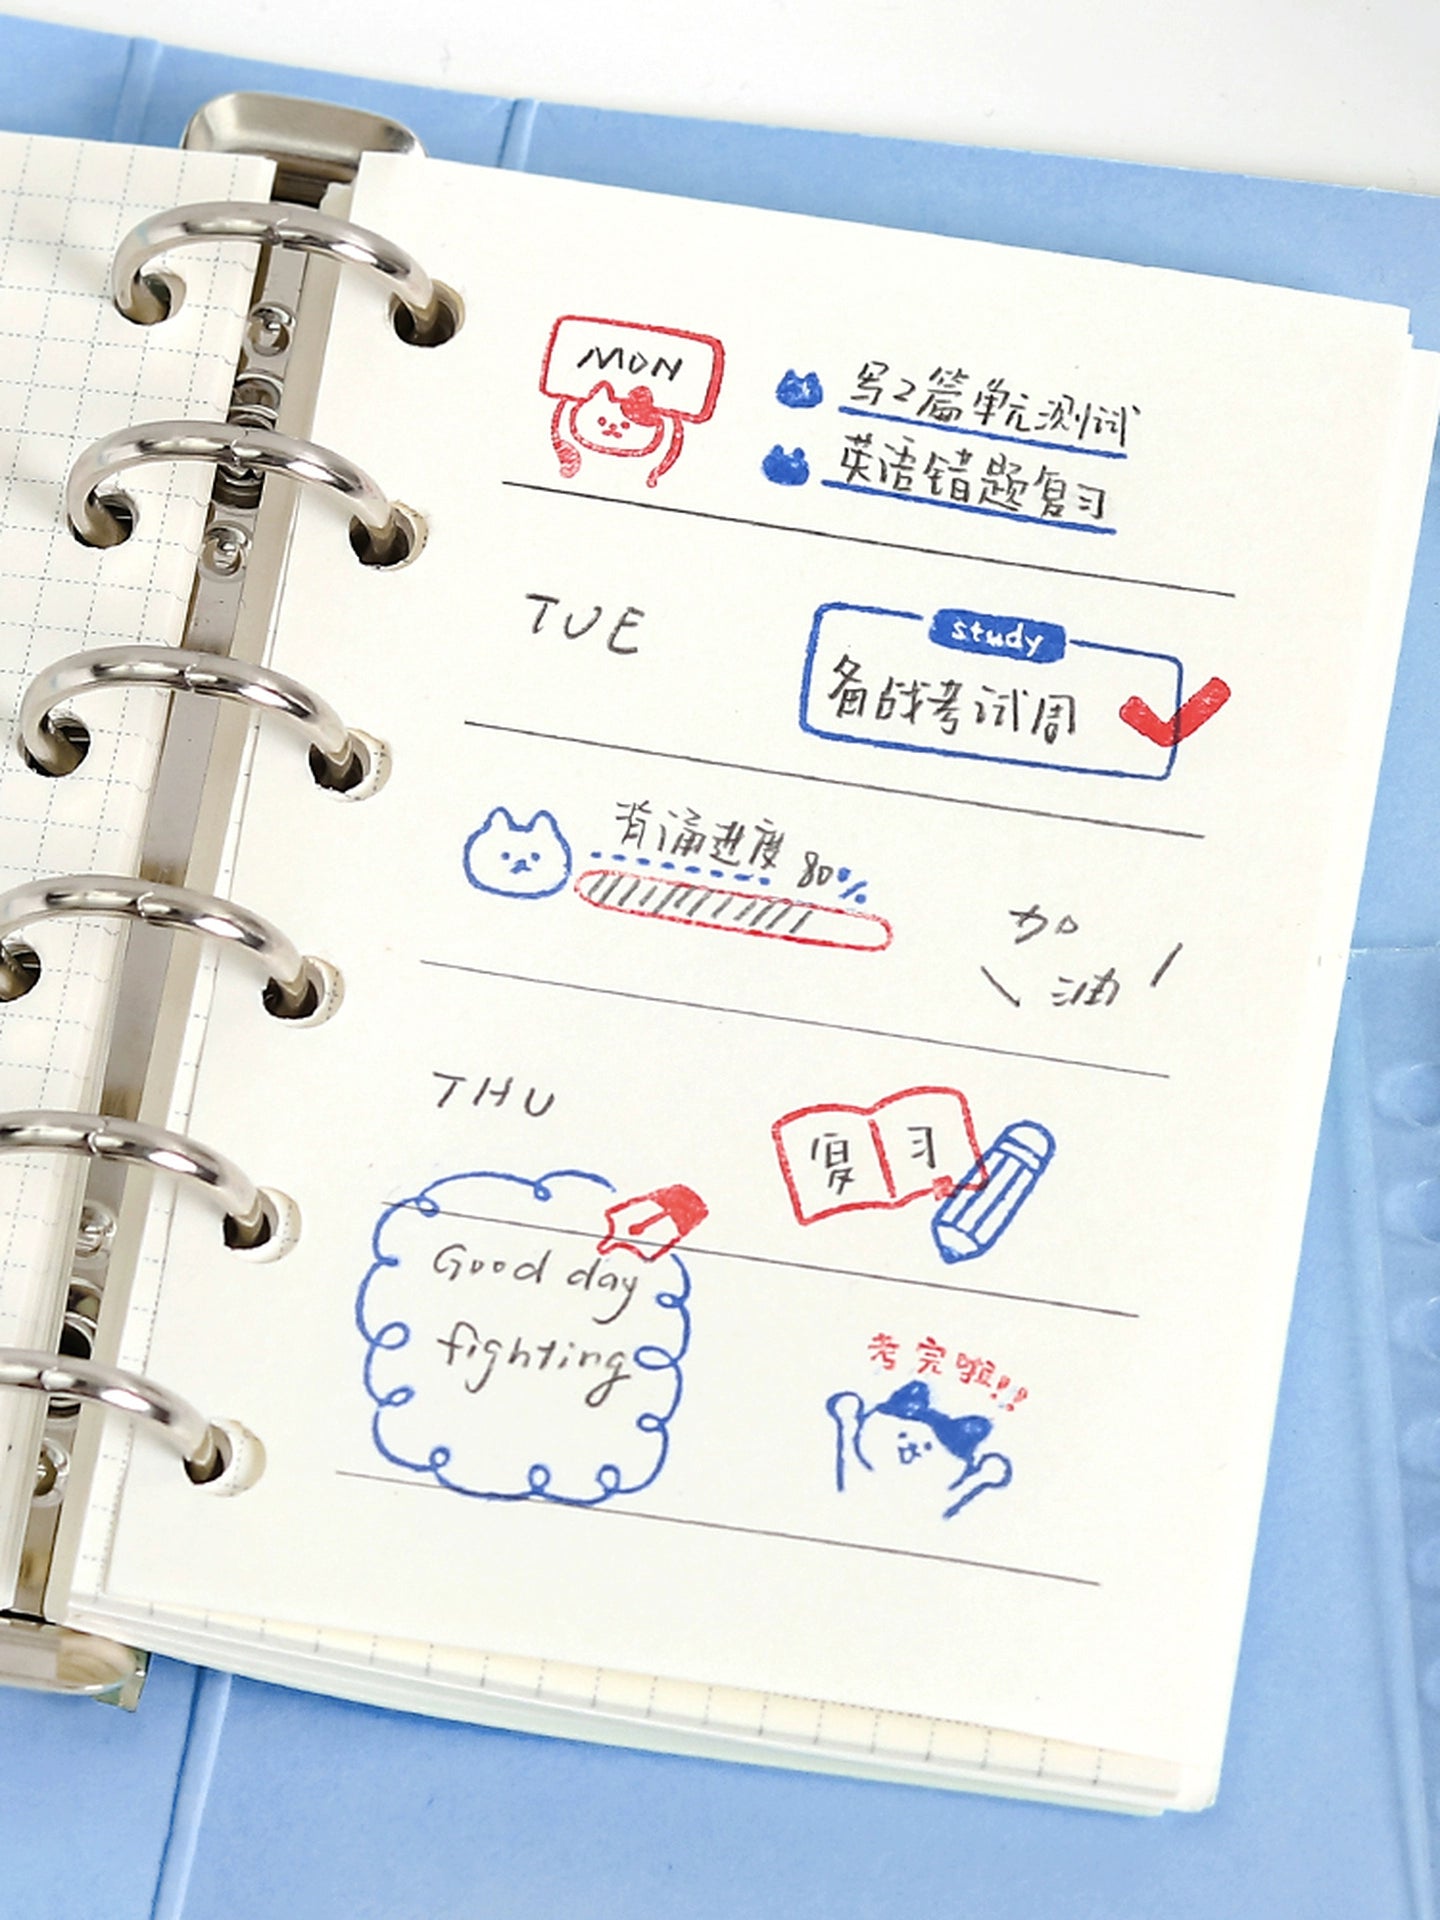 MON
写2篇单元测试
英语错题复习
TUE
study
备战考试周
背诵进度 80%
加油
THU
复习
Good day
fighting
考完啦!!